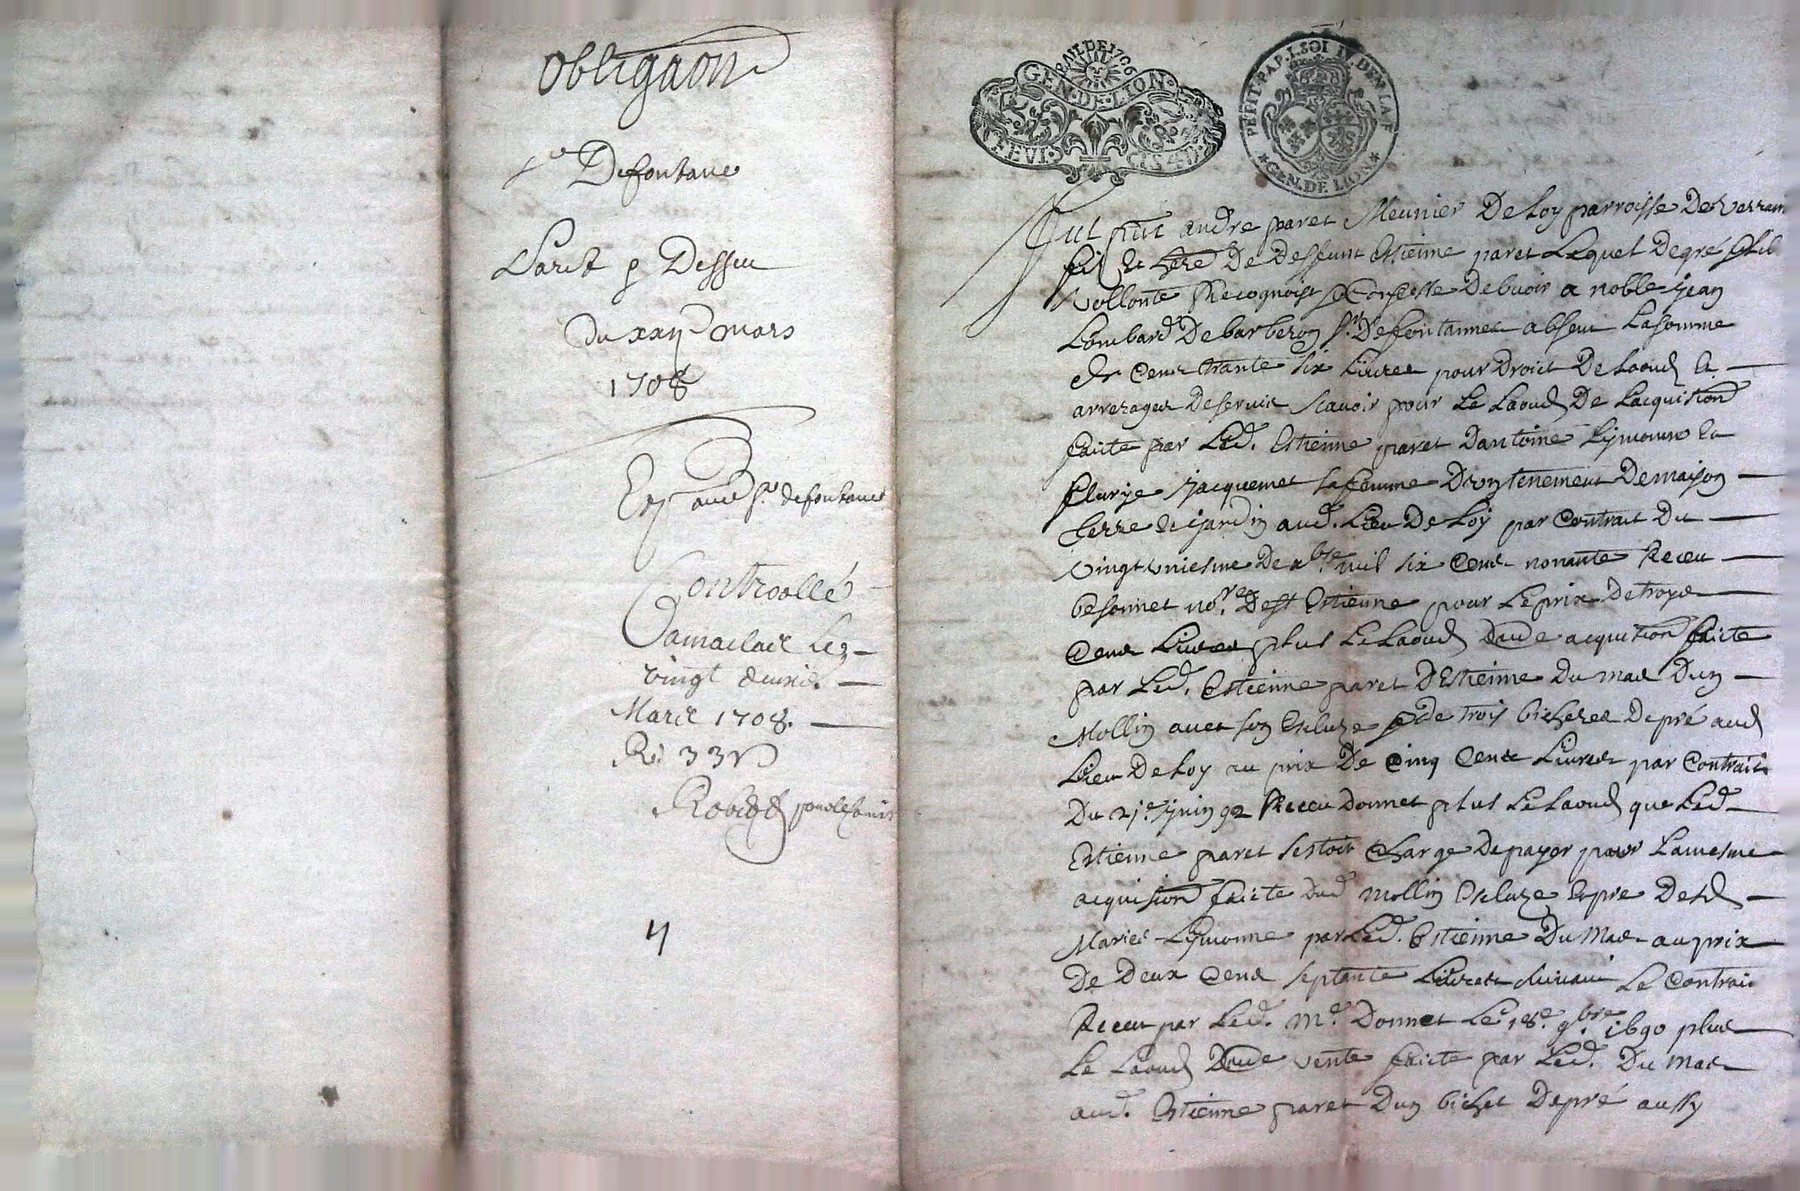 Obligaõn
Sr Defontane
Paret p Dessu
Du xxij mars
1708
Exp aud Sr defontanes
Controollé
Damaclair Le
vingt deuxe
Mars 1708.
Ri 33
Robert
4
BAVLDE 1706
GEN. DE. LION.
PETIT. PAP. I. SOL IV. DEN. LA F
GEN. DE LION
Fut pnt andre paret Meunier De Loy parroisse De Verran
fil et here De Deffunt estienne paret Lequel De gre
vollonte Recognoist & Confesse Debvoir a noble jean
Lombard De barberon Sr Defontannes absent La somme
De Cent trante six Livres pour Droict De Laoud &
arrerages De servis scavoir pour Le Laoud De Lacquisitiõn
faicte par Led. Estienne paret Dantoine Lymonne et
flurye jacquemet sa femme Dung tenement De maison
terre et jardin aud. Lieu De Loy par Contrait Du
vingt uniesme De xbre mil six Cent nonante Receu
besonnet nore Dest Estienne pour Le prix De troys
Cent Livres plus Le Laoud Daude acquisition faicte
par Led. Estienne paret D'Estienne Du mas Dun
Mollin avec son Escluze & de trois bicherees De pré aud
Lieu De Loy au prix De Cinq Cent Livres par Contrait
Du 21e juin 92 Receu Donnet plus Le Laoud que Led
Estienne paret sestoit Charge De payer pour La mesme
acquisiõn faicte dud mollin Escluze & pre Desd
Maries Lymonne par Led. Estienne Du Mas au prix
De Deux Cent septante Livres suivant Le Contrait
Receu par Led. Me Donnet Le 18e 9bre 1690 plus
Le Laoud Daude vente faicte par Led. Du mas
aud. Estienne paret Dun bichet De pré aussy